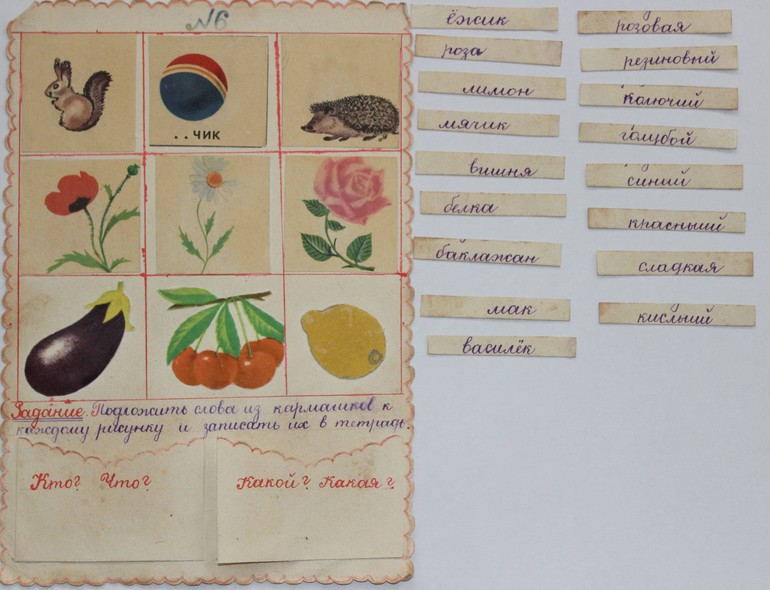 №6
..чик
Задание. Подложить слова из кармашков к
каждому рисунку и записать их в тетрадь.
Кто? Что?
Какой? Какая?
ёжик
роза
лимон
мячик
вишня
белка
баклажан
мак
василёк
розовая
резиновый
колючий
голубой
синий
красный
сладкая
кислый